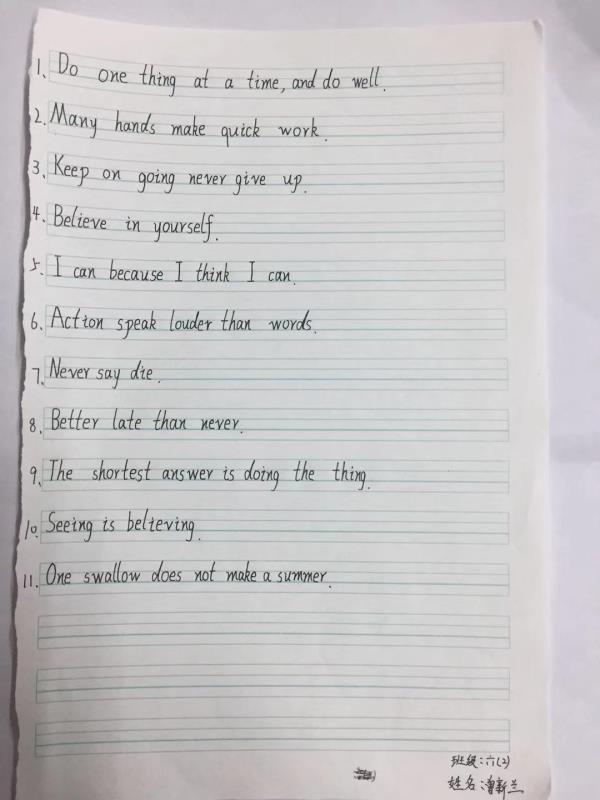 1. Do one thing at a time, and do well.
2. Many hands make quick work.
3. Keep on going never give up.
4. Believe in yourself.
5. I can because I think I can.
6. Action speak louder than words.
7. Never say die.
8. Better late than never.
9. The shortest answer is doing the thing.
10. Seeing is believing.
11. One swallow does not make a summer.
班级:六(2)
姓名:新兰